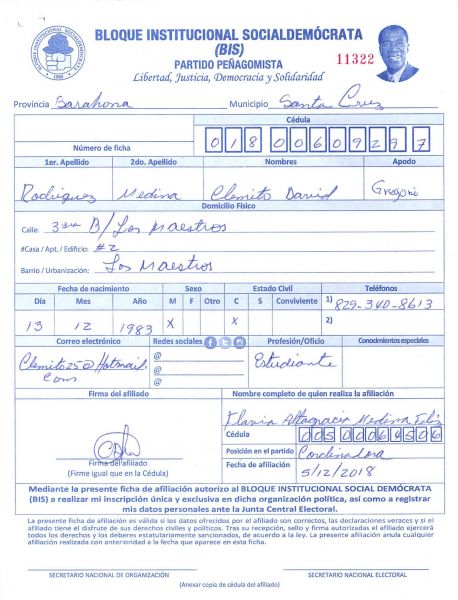 BLOQUE INSTITUCIONAL SOCIALDEMÓCRATA
(BIS)
11322
PARTIDO PEÑAGOMISTA
Libertad, Justicia, Democracia y Solidaridad
Provincia Barahona Municipio Santa Cruz
Cédula
Número de ficha 018 0060929 7
1er. Apellido 2do. Apellido Nombres Apodo
Rodriguez Medina Clemito David Gregorio
Domicilio Físico
Calle: 3era B/Los Maestros
#Casa / Apt. / Edificio: #2
Barrio / Urbanización: Los Maestros
Fecha de nacimiento Sexo Estado Civil Teléfonos
Día Mes Año M F Otro C S Conviviente 1) 829-340-8613
13 12 1983 X X 2)
Correo electrónico Redes sociales Profesión/Oficio Conocimientos especiales
Clemito25@Hotmail. @ Estudiante
Com @
@
Firma del afiliado Nombre completo de quien realiza la afiliación
Flavia Altagracia Medina Feliz
Cédula
Posición en el partido Cordinadora
Firma del afiliado
(Firme igual que en la Cédula) Fecha de afiliación 5/12/2018
Mediante la presente ficha de afiliación autorizo al BLOQUE INSTITUCIONAL SOCIAL DEMÓCRATA
(BIS) a realizar mi inscripción única y exclusiva en dicha organización política, así como a registrar
mis datos personales ante la Junta Central Electoral.
La presente ficha de afiliación es válida si los datos ofrecidos por el afiliado son correctos, las declaraciones veraces y si el
afiliado tiene el disfrute de sus derechos civiles y políticos. Tras su recepción, sello y firma autorizadas el afiliado ejercerá
todos los derechos y los deberes estatutariamente sancionados, de acuerdo a la ley. La presente afiliación anula cualquier
afiliación realizada con anterioridad a la fecha que aparece en esta ficha.
SECRETARIO NACIONAL DE ORGANIZACIÓN SECRETARIO NACIONAL ELECTORAL
(Anexar copia de cédula del afiliado)